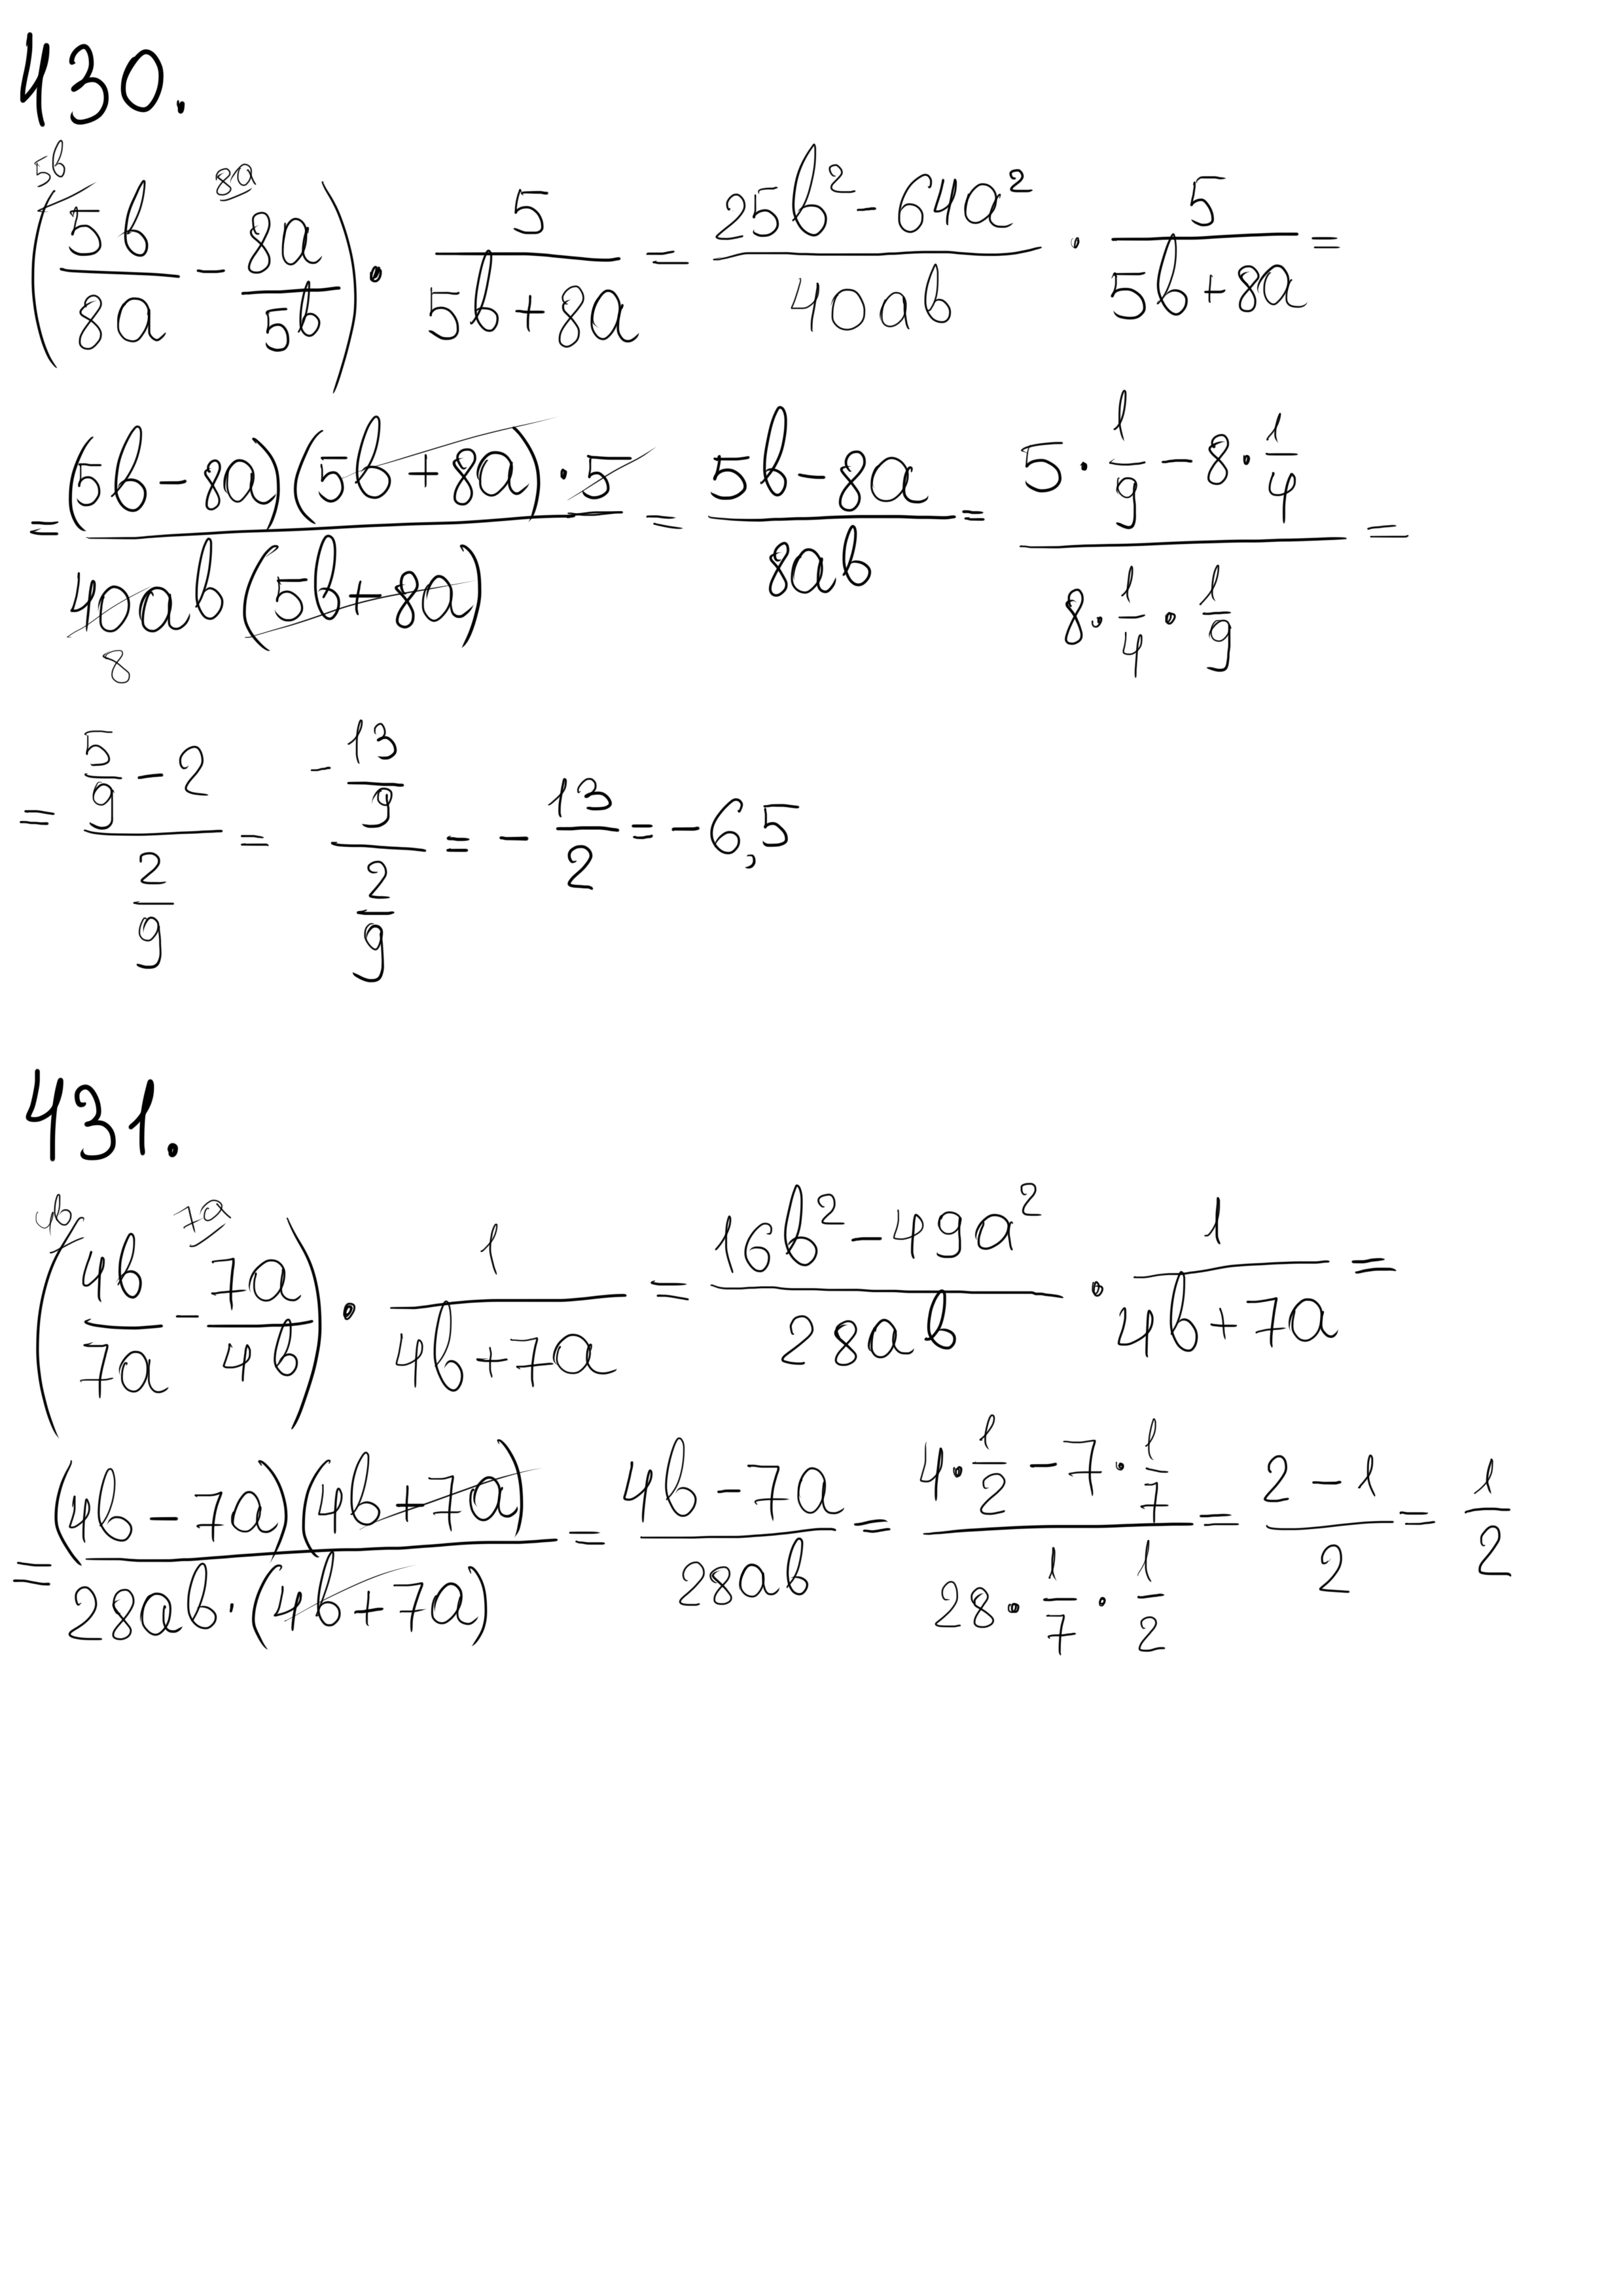 430.
(5b/8a - 8a/5b) · 5/(5b+8a) = (25b² - 64a²)/40ab · 5/(5b+8a) =
= (5b - 8a)(5b + 8a) · 5 / 40ab(5b+8a) = (5b - 8a)/8ab = (5 · 1/9 - 8 · 1/4)/(8 · 1/4 · 1/9) =
= (5/9 - 2)/(2/9) = (-13/9)/(2/9) = - 13/2 = - 6,5
431.
(4b/7a - 7a/4b) · 1/(4b+7a) = (16b² - 49a²)/28ab · 1/(4b+7a) =
= (4b - 7a)(4b + 7a) / 28ab · (4b+7a) = (4b - 7a)/28ab = (4 · 1/2 - 7 · 1/7)/(28 · 1/7 · 1/2) = (2 - 1)/2 = 1/2